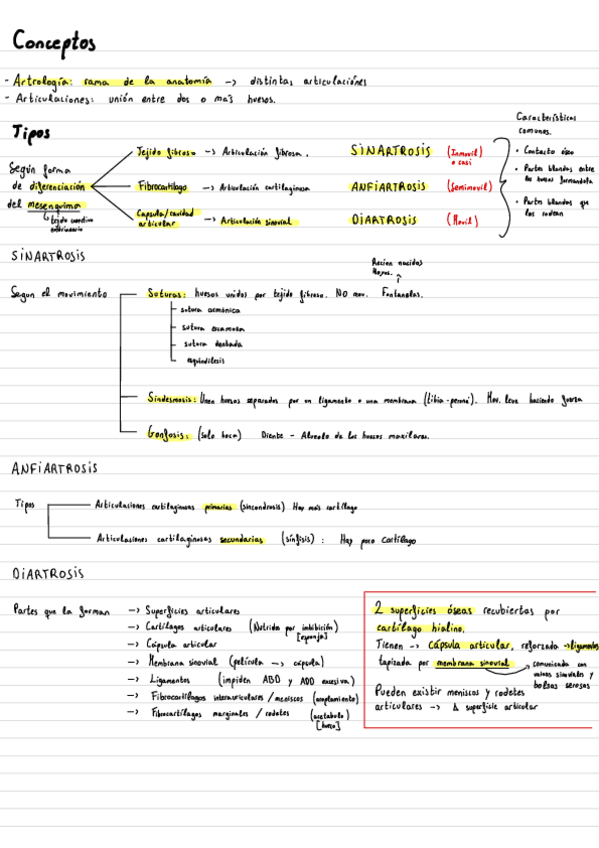 Conceptos
- Artrología: rama de la anatomía -> distintas articulaciones
- Articulaciones: unión entre dos o más huesos.
Tipos
Según forma
de diferenciación
del mesenquima
↳ tejido conectivo
embrionario
Tejido fibroso -> Articulación fibrosa. SINARTROSIS (Inmovil) o casi
Fibrocartilago -> Articulación cartilaginosa ANFIARTROSIS (Semimovil)
Capsula/cavidad
articular -> Articulación sinovial DIARTROSIS (Movil)
Características
comunes.
• Contacto óseo
• Partes blandas entre
los huesos formandola
• Partes blandas que
las rodean
SINARTROSIS
Recien nacidos
Segun el movimiento
Suturas: huesos unidos por tejido fibroso. NO mov. Fontanelas.
sutura armónica
sutura escamosa
sutura dentada
esquindilesis
Sindesmosis: Unen huesos separados por un ligamento o una membrana (tibia-peroné). Mov. leve haciendo fuerza
Gonfosis: (solo boca) Diente - Alveolo de los huesos maxilares.
ANFIARTROSIS
Tipos
Articulaciones cartilaginosas primarias (sincondrosis) Hay más cartílago
Articulaciones cartilaginosas secundarias (sínfisis) : Hay poco cartílago
DIARTROSIS
Partes que la forman
-> Superficies articulares
-> Cartílagos articulares (Nutridos por imbibición)
[esponja]
-> Cápsula articular
-> Membrana sinovial (película -> cápsula)
-> Ligamentos (impiden ABD y ADD excesiva)
-> Fibrocartílagos interarticulares / meniscos (acoplamiento)
-> Fibrocartílagos marginales / rodetes (acetabulo)
[hueco]
2 superficies óseas recubiertas por
cartílago hialino.
Tienen -> Cápsula articular, reforzada -> ligamentos
tapizada por membrana sinovial
comunicada con
vainas sinoviales y
bolsas serosas
Pueden existir meniscos y rodetes
articulares -> Δ superficie articular